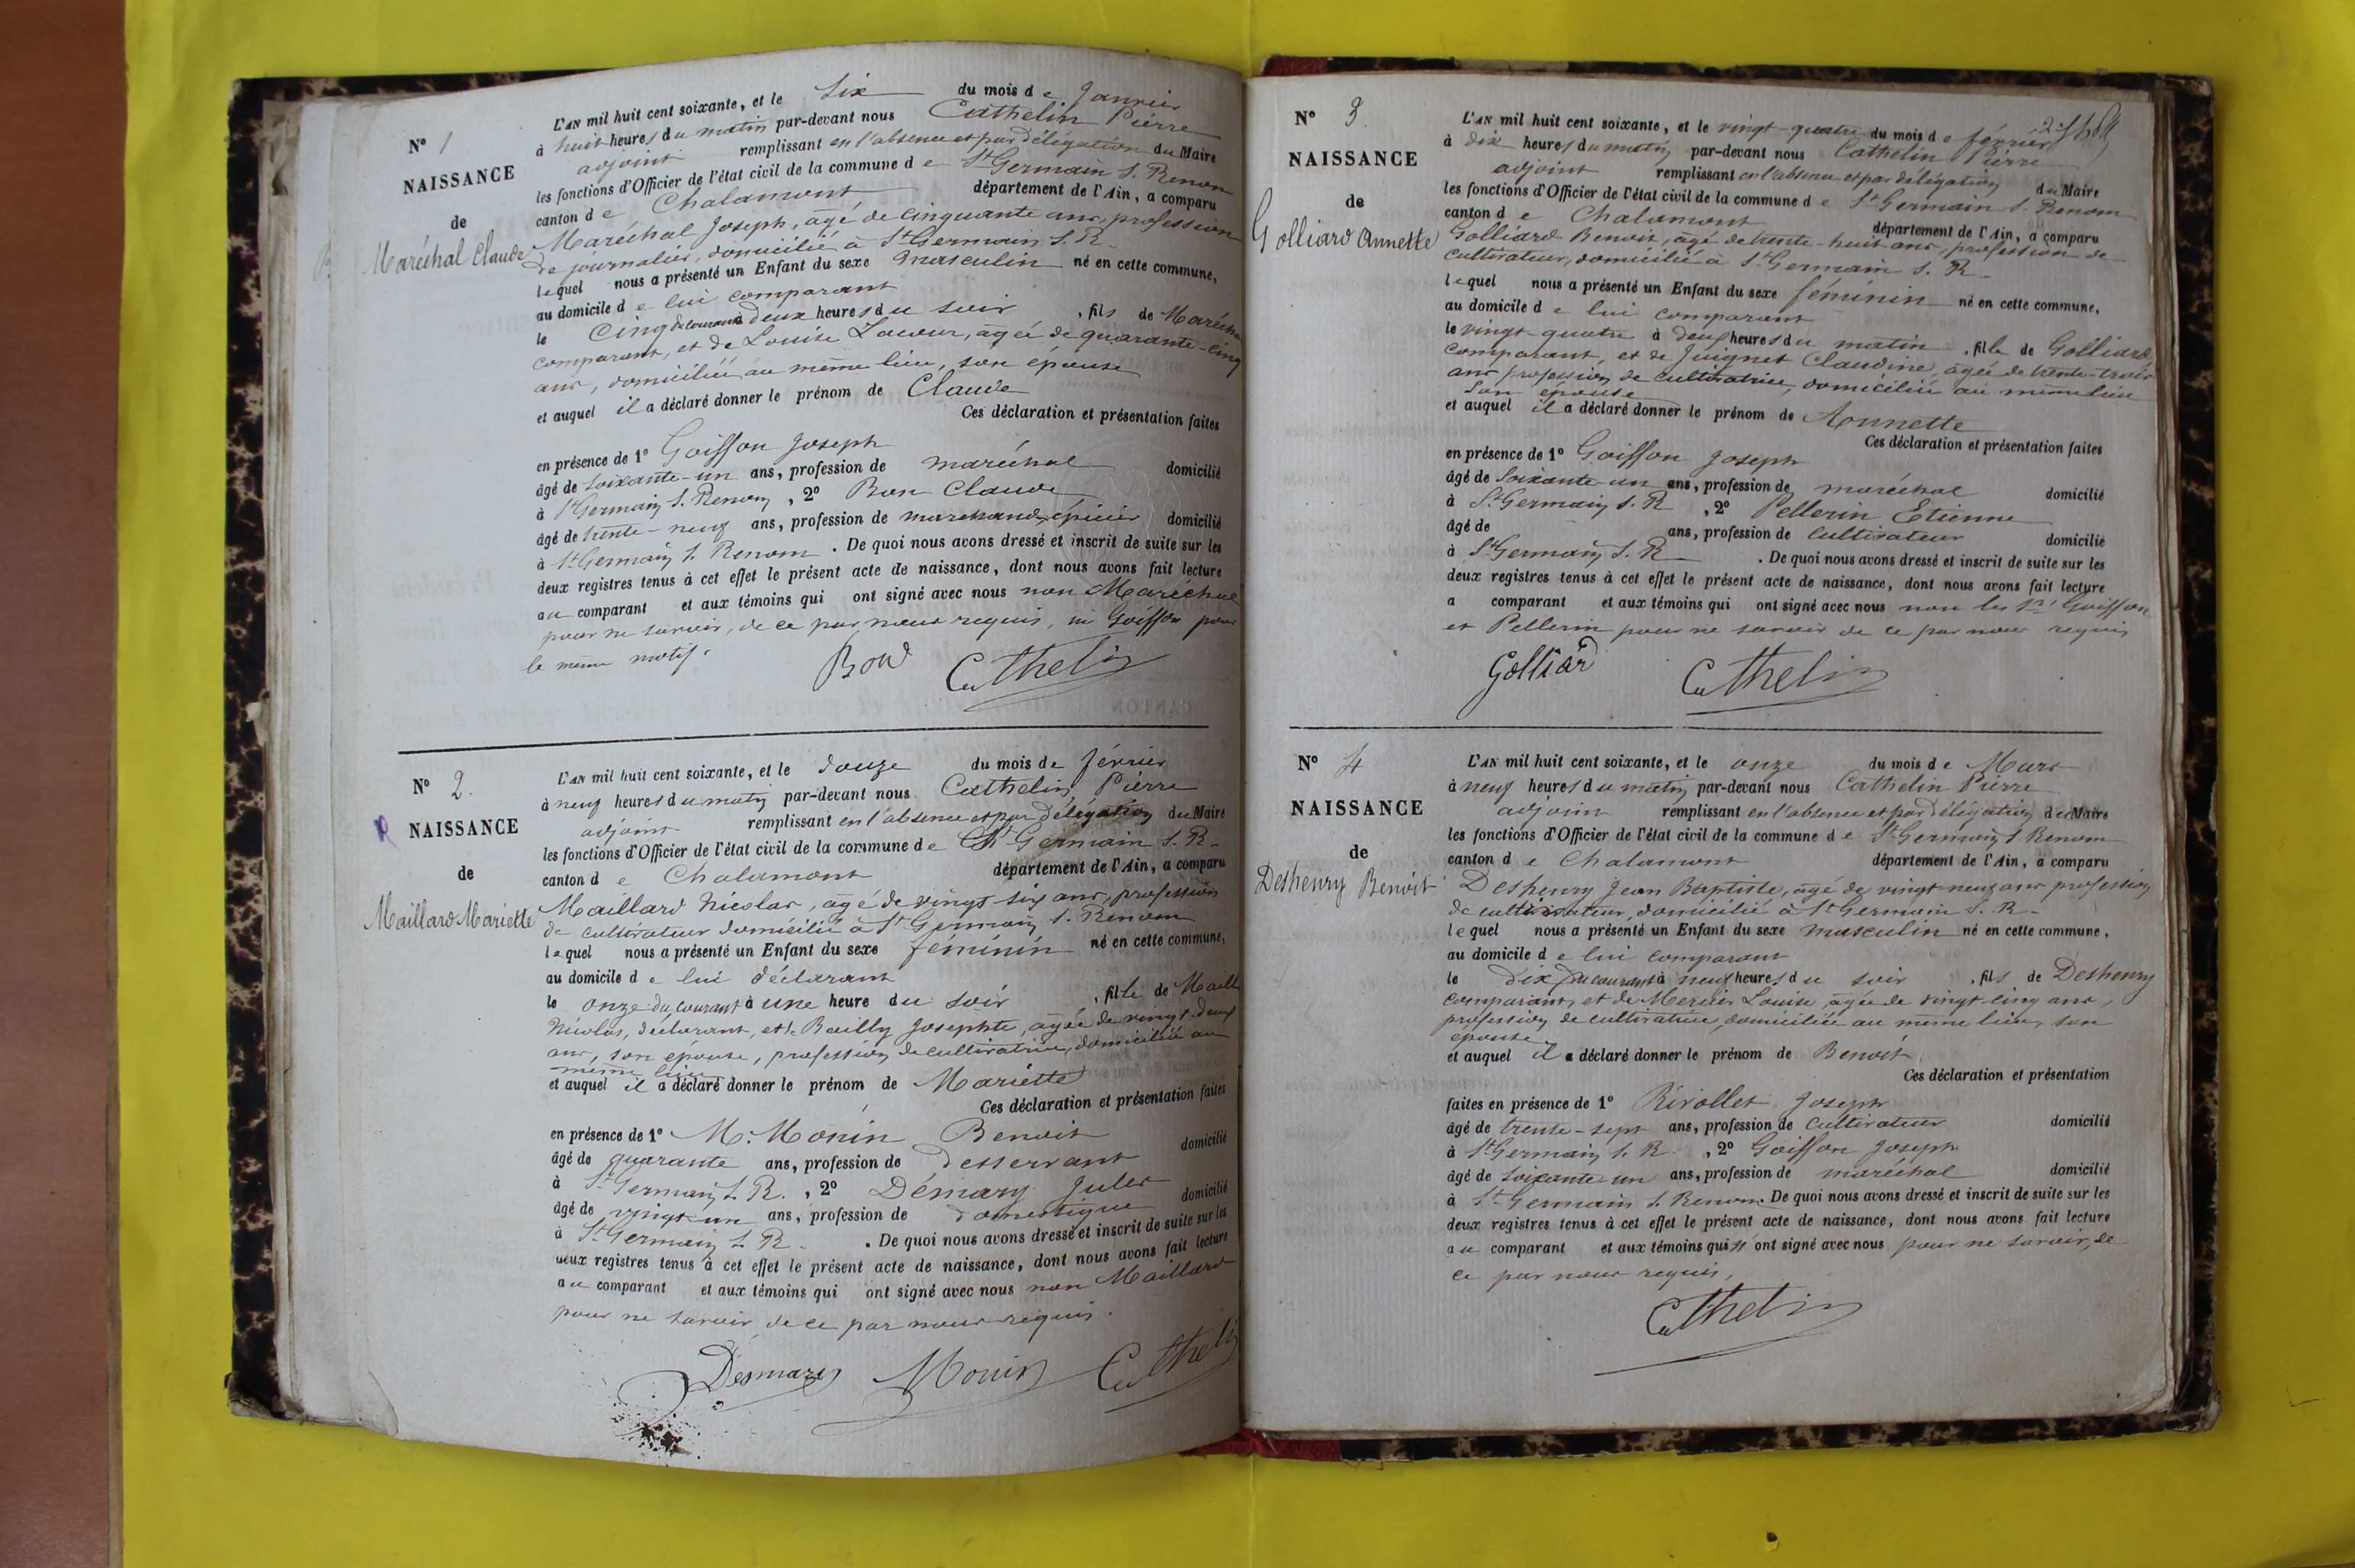 N° 1
NAISSANCE
de
Maréchal Claude
L'AN mil huit cent soixante, et le six du mois de Janvier
à huit heures du matin par-devant nous Cathelin Pierre
adjoint remplissant en l'absence et par délégation du Maire
les fonctions d'Officier de l'état civil de la commune de St Germain S. Renom
canton de Chalamont département de l'Ain, a comparu
Maréchal Joseph, âgé de cinquante ans, profession
de journalier, domicilié à St Germain S. R.
lequel nous a présenté un Enfant du sexe masculin né en cette commune,
au domicile de lui comparant
le cinq du courant à deux heures du soir, fils de Maréchal
comparant, et de Louise , âgée de quarante-cinq
ans, domiciliée au même lieu, son épouse
et auquel il a déclaré donner le prénom de Claude
Ces déclaration et présentation faites
en présence de 1° Goiffon Joseph
âgé de soixante-un ans, profession de maréchal domicilié
à St Germain S. Renom, 2° Bon Claude
âgé de trente-neuf ans, profession de marchand épicier domicilié
à St Germain S. Renom. De quoi nous avons dressé et inscrit de suite sur les
deux registres tenus à cet effet le présent acte de naissance, dont nous avons fait lecture
au comparant et aux témoins qui ont signé avec nous non Maréchal
pour ne savoir, de ce par nous requis, ni Goiffon pour
le même motif.
Bon Cathelin
N° 2.
NAISSANCE
de
Maillard Mariette
L'AN mil huit cent soixante, et le douze du mois de février
à neuf heures du matin par-devant nous Cathelin Pierre
adjoint remplissant en l'absence et par délégation du Maire
les fonctions d'Officier de l'état civil de la commune de St Germain S. R.
canton de Chalamont département de l'Ain, a comparu
Maillard Nicolas, âgé de vingt-six ans, profession
de cultivateur domicilié à St Germain S. Renom
lequel nous a présenté un Enfant du sexe féminin né en cette commune,
au domicile de lui déclarant
le onze du courant à une heure du soir, fille de Maill
Nicolas, déclarant, et de Bailly Josephte, âgée de vingt-deux
ans, son épouse, profession de cultivatrice, domiciliée au
même lieu
et auquel il a déclaré donner le prénom de Mariette
Ces déclaration et présentation faites
en présence de 1° M. Monin Benoit
âgé de quarante ans, profession de desservant domicilié
à St Germain S. R., 2° Démary Jules
âgé de vingt-un ans, profession de domestique domicilié
à St Germain S. R. De quoi nous avons dressé et inscrit de suite sur les
deux registres tenus à cet effet le présent acte de naissance, dont nous avons fait lecture
au comparant et aux témoins qui ont signé avec nous non Maillard
pour ne savoir de ce par nous requis.
Désmary Monin Cathelin
N° 3.
NAISSANCE
de
Golliard Annette
L'AN mil huit cent soixante, et le vingt-quatre du mois de février
à dix heures du matin par-devant nous Cathelin Pierre
adjoint remplissant en l'absence et par délégation du Maire
les fonctions d'Officier de l'état civil de la commune de St Germain S. Renom
canton de Chalamont département de l'Ain, a comparu
Golliard Benoit, âgé de trente-huit ans, profession de
cultivateur, domicilié à St Germain S. R.
lequel nous a présenté un Enfant du sexe féminin né en cette commune,
au domicile de lui comparant
le vingt-quatre à deux heures du matin, fille de Golliard
comparant, et de Juignet Claudine, âgée de trente-trois
ans profession de cultivatrice, domiciliée au même lieu
son épouse
et auquel il a déclaré donner le prénom de Annette
Ces déclaration et présentation faites
en présence de 1° Goiffon Joseph
âgé de soixante-un ans, profession de maréchal domicilié
à St Germain S. R, 2° Pellerin Etienne
âgé de ans, profession de cultivateur domicilié
à St Germain S. R. De quoi nous avons dressé et inscrit de suite sur les
deux registres tenus à cet effet le présent acte de naissance, dont nous avons fait lecture
a comparant et aux témoins qui ont signé avec nous non les Srs Goiffon
et Pellerin pour ne savoir de ce par nous requis
Golliard Cathelin
N° 4
NAISSANCE
de
Deshenry Benoit
L'AN mil huit cent soixante, et le onze du mois de Mars
à neuf heures du matin par-devant nous Cathelin Pierre
adjoint remplissant en l'absence et par délégation du Maire
les fonctions d'Officier de l'état civil de la commune de St Germain S. Renom
canton de Chalamont département de l'Ain, a comparu
Deshenry Jean Baptiste, âgé de vingt-neuf ans profession
de cultivateur, domicilié à St Germain S. R.
lequel nous a présenté un Enfant du sexe masculin né en cette commune,
au domicile de lui comparant
le dix du courant à neuf heures du soir, fils de Deshenry
comparant, et de Mercier Louise, âgée de vingt-cinq ans,
profession de cultivatrice, domiciliée au même lieu, son
épouse
et auquel il a déclaré donner le prénom de Benoit
Ces déclaration et présentation
faites en présence de 1° Rivollet Joseph
âgé de trente-sept ans, profession de cultivateur domicilié
à St Germain S. R., 2° Goiffon Joseph
âgé de soixante-un ans, profession de maréchal domicilié
à St Germain S. Renom De quoi nous avons dressé et inscrit de suite sur les
deux registres tenus à cet effet le présent acte de naissance, dont nous avons fait lecture
au comparant et aux témoins qui n'ont signé avec nous pour ne savoir, de
ce par nous requis,
Cathelin